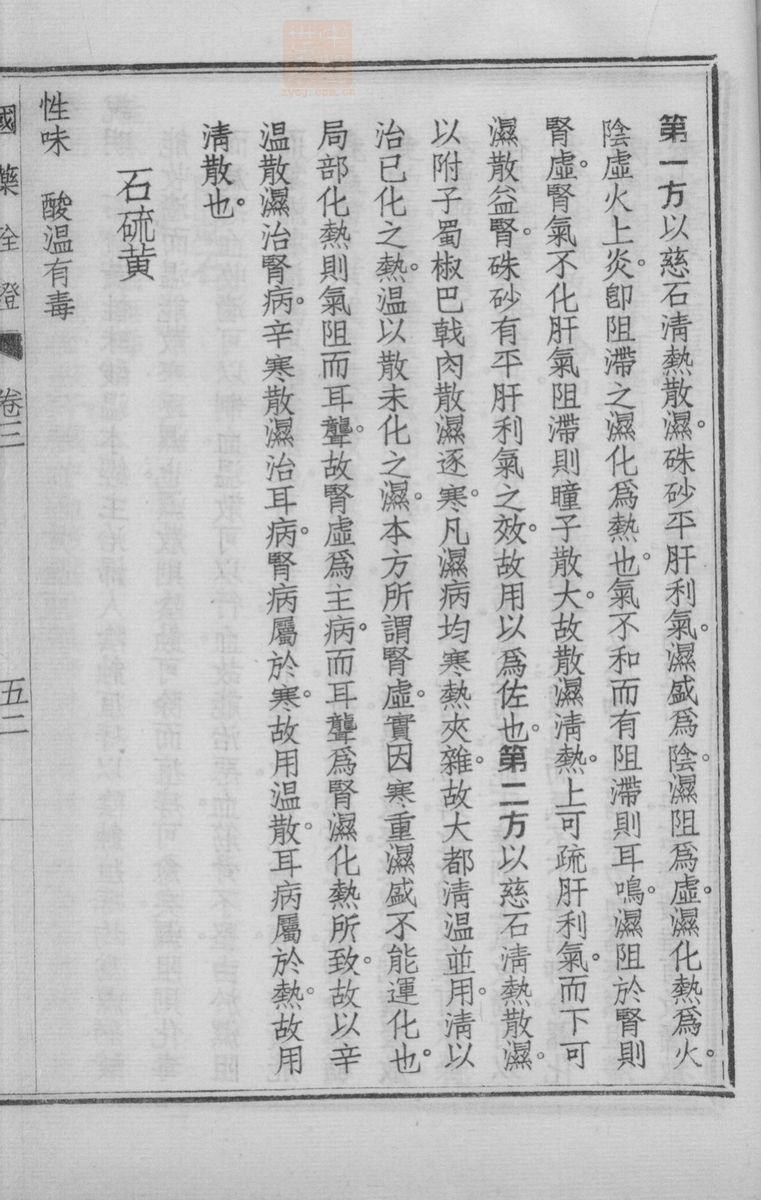 第一方以慈石淸熱散濕。硃砂平肝利氣。濕盛爲陰。濕阻爲虛。濕化熱爲火。
陰虛火上炎。卽阻滯之濕化爲熱也。氣不和而有阻滯則耳鳴。濕阻於腎則
腎虛。腎氣不化肝氣阻滯則瞳子散大。故散濕淸熱。上可疏肝利氣。而下可
濕散益腎。硃砂有平肝利氣之效。故用以爲佐也。第二方以慈石淸熱散濕。
以附子蜀椒巴戟肉散濕逐寒。凡濕病均寒熱夾雜。故大都淸温並用。淸以
治已化之熱。温以散未化之濕。本方所謂腎虛。實因寒重濕盛不能運化也。
局部化熱則氣阻而耳聾。故腎虛爲主病。而耳聾爲腎濕化熱所致。故以辛
温散濕治腎病。辛寒散濕治耳病。腎病屬於寒。故用温散。耳病屬於熱。故用
淸散也。
石硫黃
性味 酸温有毒
國藥詮證 卷三 五二
中
世
zycj.com.cn